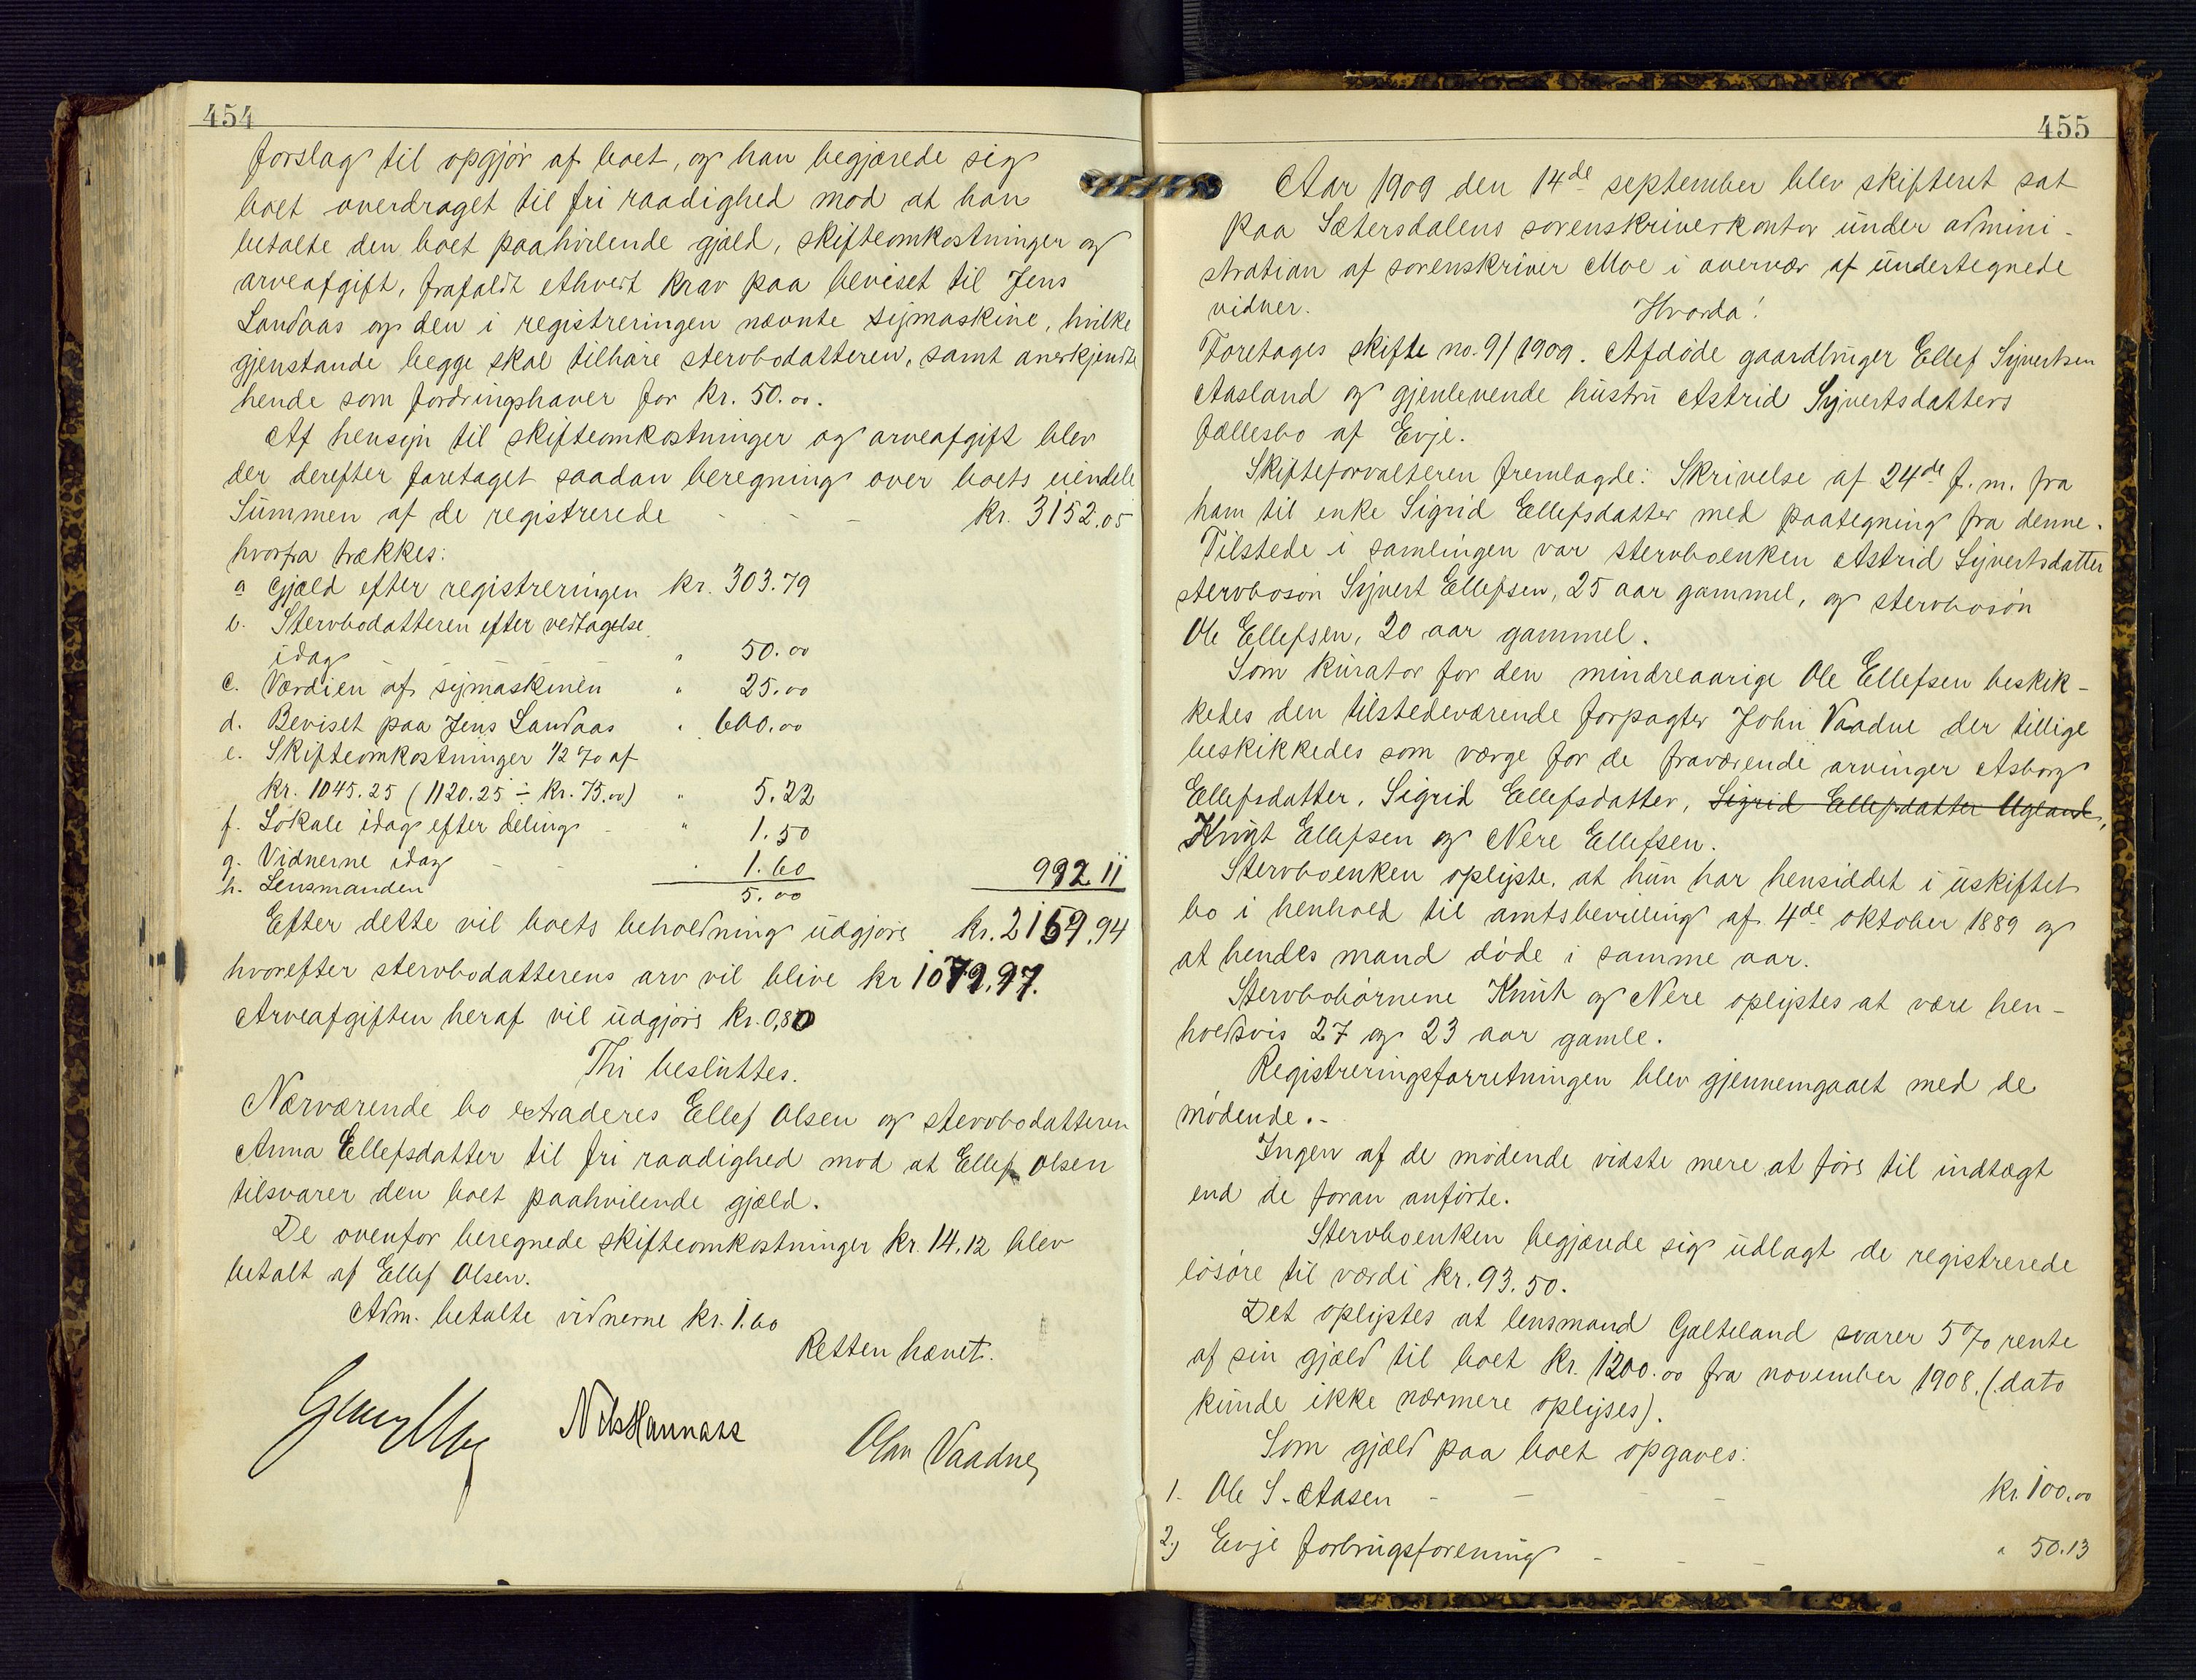 454
forslag til opgjør af boet, og han begjærede sig
boet overdraget til fri raadighed mod at han
betalte den boet paahvilende gjæld, skifteomkostninger og
arveafgift, frafaldt ethvert krav paa beviset til Jens
Landaas og den i registreringen nævnte symaskine, hvilke
gjenstande begge skal tilhøre stervbodatteren, samt anerkjendte
hende som fordringshaver for kr. 50.00.
Af hensyn til skifteomkostninger og arveafgift blev
der derefter foretaget saadan beregning over boets eiendele
Summen af de registrerede - - - kr. 3152.05
hvorfra trækkes:
a Gjæld efter registreringen kr. 303.79
b. Stervbodatteren efter vedtagelse
idag " 50.00
c. Værdien af symaskinen " 25.00
d. Beviset paa Jens Landaas " 600.00
e. Skifteomkostninger 1/2 % af
kr. 1045.25 (1120.25 ÷ kr. 75.00) " 5.22
f. Lokale idag efter deling - " 1.50
g. Vidnerne idag - - " 1.60 992.11
h. Lensmanden 5.00
Efter dette vil boets beholdning udgjøre kr. 2159.94
hvorefter stervbodatterens arv vil blive kr 1079.97.
Arveafgiften heraf vil udgjøre kr. 0,80
Thi besluttes.
Nærværende bo extraderes Ellef Olsen og stervbodatteren
Anna Ellefsdatter til fri raadighed mod at Ellef Olsen
tilsvarer den boet paahvilende gjæld.
De ovenfor beregnede skifteomkostninger kr. 14.12 blev
betalt af Ellef Olsen.
Adm. betalte vidnerne kr. 1.60
Retten hævet.
Nils Hannaas
Olav Vaadne
455
Aar 1909 den 14de september blev skifteret sat
paa Sætersdalens sorenskriverkontor under admini-
stration af sorenskriver Moe i overvær af undertegnede
vidner. Hvorda!
Foretages skifte no. 9/1909. Afdøde gaardbruger Ellef Syvertsen
Aasland og gjenlevende hustru Astrid Syvertsdatters
fællesbo af Evje.
Skifteforvalteren fremlagde: Skrivelse af 24de f. m. fra
ham til enke Sigrid Ellefsdatter med paategning fra denne.
Tilstede i samlingen var stervboenken Astrid Syvertsdatter
stervbosøn Syvert Ellefsen, 25 aar gammel, og stervbosøn
Ole Ellefsen, 20 aar gammel.
Som kurator for den mindreaarige Ole Ellefsen beskik-
kedes den tilstedeværende forpagter John Vaadne der tillige
beskikkedes som værge for de fraværende arvinger Asborg
Ellefsdatter, Sigrid Ellefsdatter, Sigrid Ellefsdatter Ugland,
Knut Ellefsen og Nere Ellefsen.
Stervboenken oplyste, at hun har hensiddet i uskiftet
bo i henhold til amtsbevilling af 4de oktober 1889 og
at hendes mand døde i samme aar.
Stervbobørnene Knut og Nere oplystes at være hen-
holdsvis 27 og 23 aar gamle.
Registreringsforretningen blev gjennemgaaet med de
mødende.-
Ingen af de mødende vidste mere at føre til indtægt
end de foran anførte.
Stervboenken begjærede sig udlagt de registrerede
løsøre til værdi kr. 93.50.
Det oplystes at lensmand Galteland svarer 5% rente
af sin gjæld til boet kr. 1200.00 fra november 1908, (dato
kunde ikke nærmere oplyses).
Som gjæld paa boet opgaves:
1. Ole S. Aasen - - - kr. 100.00
2.) Evje forbrugsforening - - - " 50.13